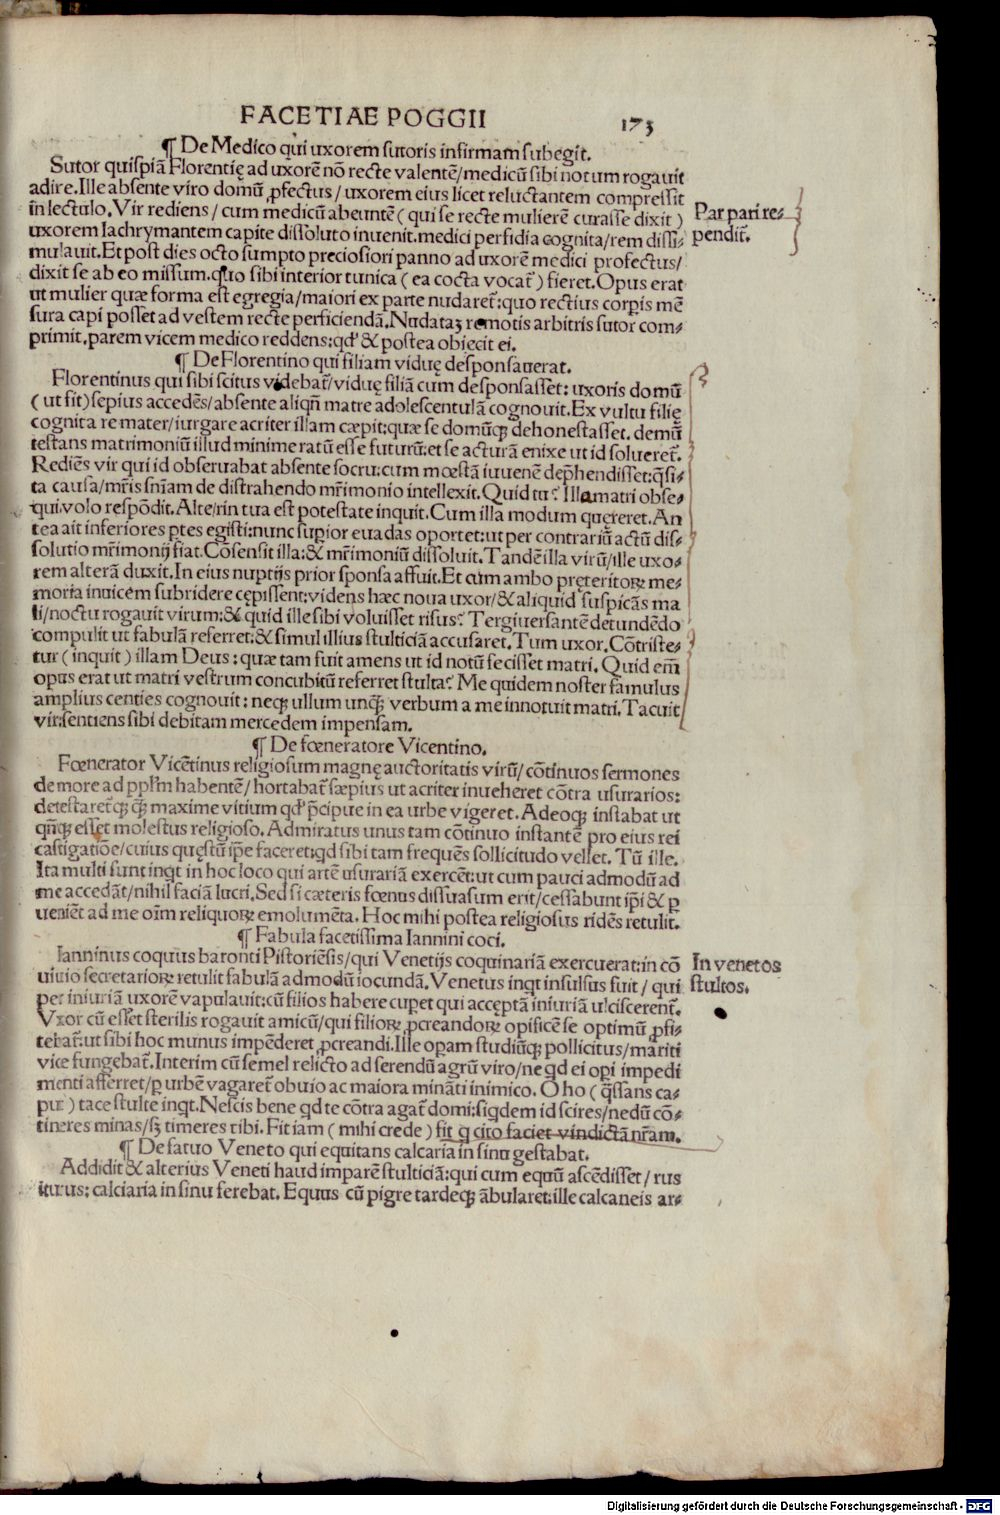 FACETIAE POGGII
173
¶ De Medico qui uxorem sutoris infirmam subegit.
Sutor quispiã Florentię ad uxorẽ nõ recte valentẽ/medicũ sibi notum rogauit
adire. Ille absente viro domũ ꝓfectus/uxorem eius licet reluctantem compressit
in lectulo. Vir rediens/cum medicũ abeuntẽ (qui se recte mulierẽ curasse dixit)
uxorem lachrymantem capite dissoluto inuenit. medici perfidia cognita/rem dissi-
mulauit. Et post dies octo sumpto preciosiori panno ad uxorẽ medici profectus/
dixit se ab eo missum. quo sibi interior tunica (ea cocta vocat̃) fieret. Opus erat
ut mulier quæ forma est egregia/maiori ex parte nudaret̃: quo rectius corpis mẽ
sura capi posset ad vestem recte perficiendã. Nudataꝫ remotis arbitris sutor com-
primit. parem vicem medico reddens: qď & postea obiecit ei.
Par pari re-
pendit̃.
¶ De Florentino qui filiam viduę desponsauerat.
Florentinus qui sibi scitus videbat̃/viduę filiã cum desponsasset: uxoris domũ
(ut fit) sepius accedẽs/absente aliqñ matre adolescentulã cognouit. Ex vultu filie
cognita re mater/iurgare acriter illam cæpit: quæ se domũqꝫ dehonestasset. demũ
testans matrimoniũ illud minime ratũ esse futurũ: et se acturã enixe ut id solueret̃.
Rediẽs vir qui id obseruabat absente socru: cum mœstã iuuenẽ dep̃hendisset: q̃si-
ta causa/mr̃is sñiam de distrahendo mr̃imonio intellexit. Quid tu? Illa matri obse-
qui volo respõdit. Alterin tua est potestate inquit. Cum illa modum quęreret. An
tea ait inferiores ꝑtes egisti: nunc supior euadas oportet: ut per contrariũ actũ dis-
solutio mr̃imonij fiat. Cõsensit illa: & mr̃imoniũ dissoluit. Tandẽ illa virũ/ille uxo-
rem alterã duxit. In eius nuptijs prior sponsa affuit. Et cum ambo pręteritoꝝ me-
moria inuicem subridere cępissent: videns hæc noua uxor/& aliquid suspicãs ma
li/noctu rogauit virum: & quid ille sibi voluisset risus? Tergiuersantẽ detundẽdo
compulit ut fabulã referret: & simul illius stulticiã accusaret. Tum uxor. Cõtriste-
tur (inquit) illam Deus: quæ tam fuit amens ut id notũ fecisset matri. Quid em̃
opus erat ut matri vestrum concubitũ referret stulta? Me quidem noster famulus
amplius centies cognouit: neqꝫ ullum unq̃ꝫ verbum a me innotuit matri. Tacuit
vir: sentiens sibi debitam mercedem impensam.
¶ De fœneratore Vicentino.
Fœnerator Vicẽtinus religiosum magnę auctoritatis virũ/cõtinuos sermones
de more ad ppľm habentẽ/hortabat̃ sæpius ut acriter inueheret cõtra usurarios:
detestaret̃qꝫ q̃ꝫ maxime vitium qď p̃cipue in ea urbe vigeret. Adeoqꝫ instabat ut
qñqꝫ esset molestus religioso. Admiratus unus tam cõtinuo instantẽ pro eius rei
castigatiõe/cuius quęstũ ip̃e faceret: qd sibi tam frequẽs sollicitudo vellet. Tũ ille.
Ita multi sunt inqt in hoc loco qui artẽ usurariã exercẽt: ut cum pauci admodũ ad
me accedãt/nihil faciã lucri. Sed si cæteris fœnus dissuasum erit/cessabunt ip̃i & ꝑ
ueniẽt ad me oĩm reliquoꝝ emolumẽta. Hoc mihi postea religiosus ridẽs retulit.
¶ Fabula facetissima Iannini coci.
Ianninus coquus baronti Pistoriẽsis/qui Venetijs coquinariã exercuerat: in cõ
uiuio secretarioꝝ retulit fabulã admodũ iocundã. Venetus inqt insulsus fuit/qui
per iniuriã uxorẽ vapulauit: cũ filios habere cuꝑet qui acceptã iniuriã ulciscerent̃.
Vxor cũ esset sterilis rogauit amicũ/qui filioꝝ ꝓcreandoꝝ opificẽ se optimũ ꝓfi-
tebat̃: ut sibi hoc munus impẽderet ꝓcreandi. Ille opam studiũqꝫ pollicitus/mariti
vice fungebat̃. Interim cũ semel relicto ad serendũ agrũ viro/ne qd ei opi impedi
menti afferret/ꝑ urbẽ vagaret̃ obuio ac maiora minãti inimico. O ho (q̃ssans ca-
put) tace stulte inqt. Nescis bene qd te cõtra agat̃ domi: siqdem id scires/nedũ cõ-
tineres minas/sꝫ timeres tibi. Fit iam (mihi crede) fit q cito faciet vindictã nr̃am.
In venetos
stultos.
¶ De fatuo Veneto qui equitans calcaria in sinu gestabat.
Addidit & alterius Veneti haud imparẽ stulticiã: qui cum equũ ascẽdisset/rus
iturus: calciaria in sinu ferebat. Equus cũ pigre tardeqꝫ ãbularet: ille calcaneis ar-
Digitalisierung gefördert durch die Deutsche Forschungsgemeinschaft - DFG